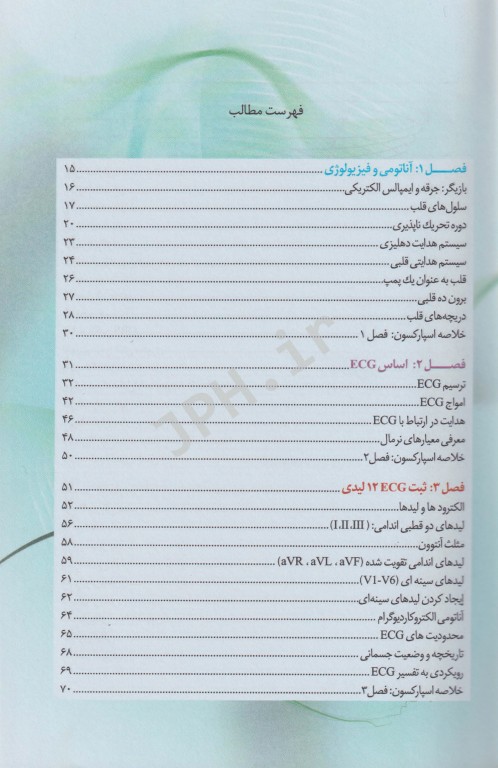 فهرست مطالب
فصـــل ۱: آناتومی و فیزیولوژی ۱۵
بازیگر: جرقه و ایمپالس الکتریکی ۱۶
سلول‌های قلب ۱۷
دوره تحریك ناپذیری ۲۰
سیستم هدایت دهلیزی ۲۳
سیستم هدایتی قلبی ۲۴
قلب به عنوان یك پمپ ۲۶
برون ده قلبی ۲۷
دریچه‌های قلب ۲۸
خلاصه اسپارکسون: فصل ۱ ۳۰
فصـــل ۲: اساس ECG ۳۱
ترسیم ECG ۳۲
امواج ECG ۴۲
هدایت در ارتباط با ECG ۴۶
معرفی معیارهای نرمال ۴۸
خلاصه اسپارکسون: فصل۲ ۵۰
فصل ۳: ثبت ECG ۱۲ لیدی ۵۱
الکترود ها و لیدها ۵۲
لیدهای دو قطبی اندامی: (I،II،III) ۵۶
مثلث آنتوون ۵۸
لیدهای اندامی تقویت شده (aVR ، aVL ، aVF) ۵۹
لیدهای سینه ای (V1-V6) ۶۱
ایجاد کردن لیدهای سینه‌ای ۶۲
آناتومی الکتروکاردیوگرام ۶۴
محدودیت های ECG ۶۵
تاریخچه و وضعیت جسمانی ۶۸
رویکردی به تفسیر ECG ۶۹
خلاصه اسپارکسون: فصل۳ ۷۰
JPH.ir